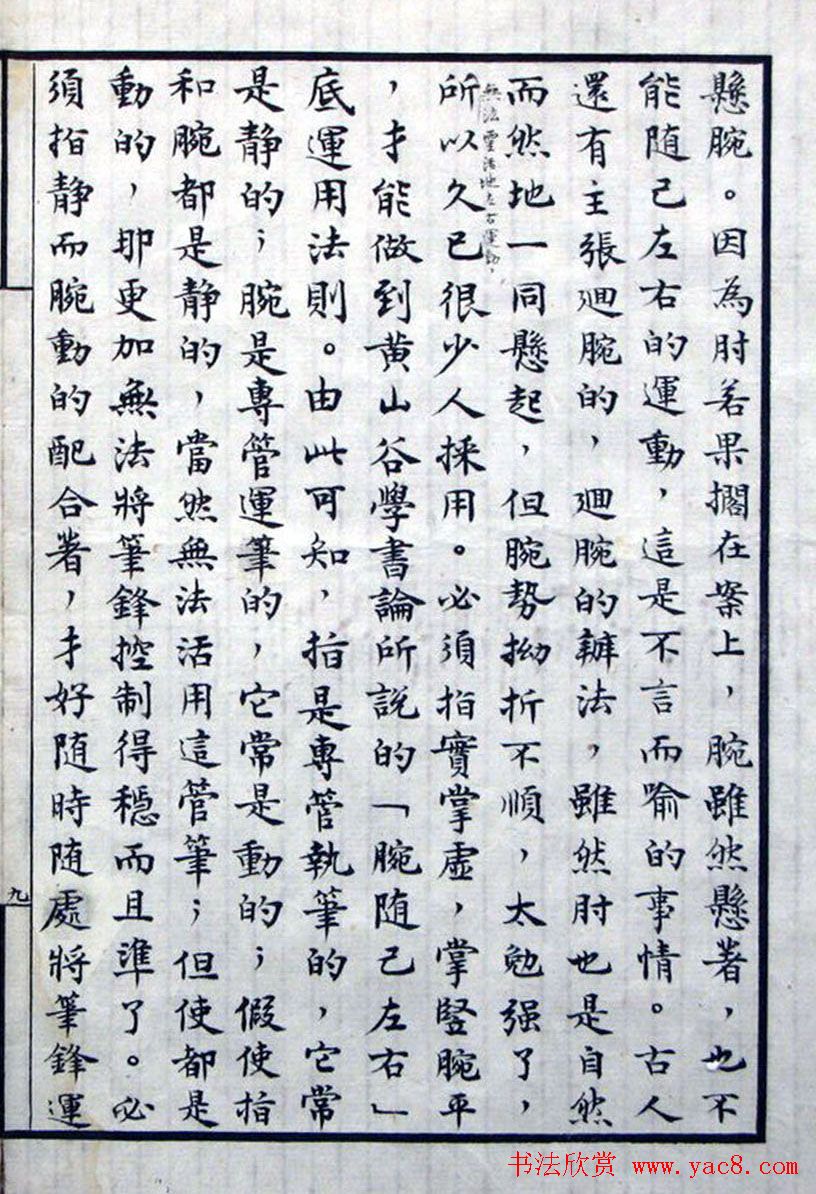 懸腕。因為肘若果擱在案上，腕雖然懸著，也不
能随己左右的運動，這是不言而喻的事情。古人
還有主張廻腕的，廻腕的辦法，雖然肘也是自然
而然地一同懸起，但腕勢拗折不順，太勉强了，
無法靈活地左右運動，
所以久已很少人採用。必須指實掌虛，掌竪腕平
，才能做到黄山谷學書論所説的「腕随己左右」
底運用法則。由此可知，指是專管執筆的，它常
是静的；腕是專管運筆的，它常是動的；假使指
和腕都是静的，當然無法活用這管筆；但使都是
動的，那更加無法將筆鋒控制得穩而且準了。必
須指静而腕動的配合著，才好随時随處將筆鋒運
九
书法欣赏 www.yac8.com